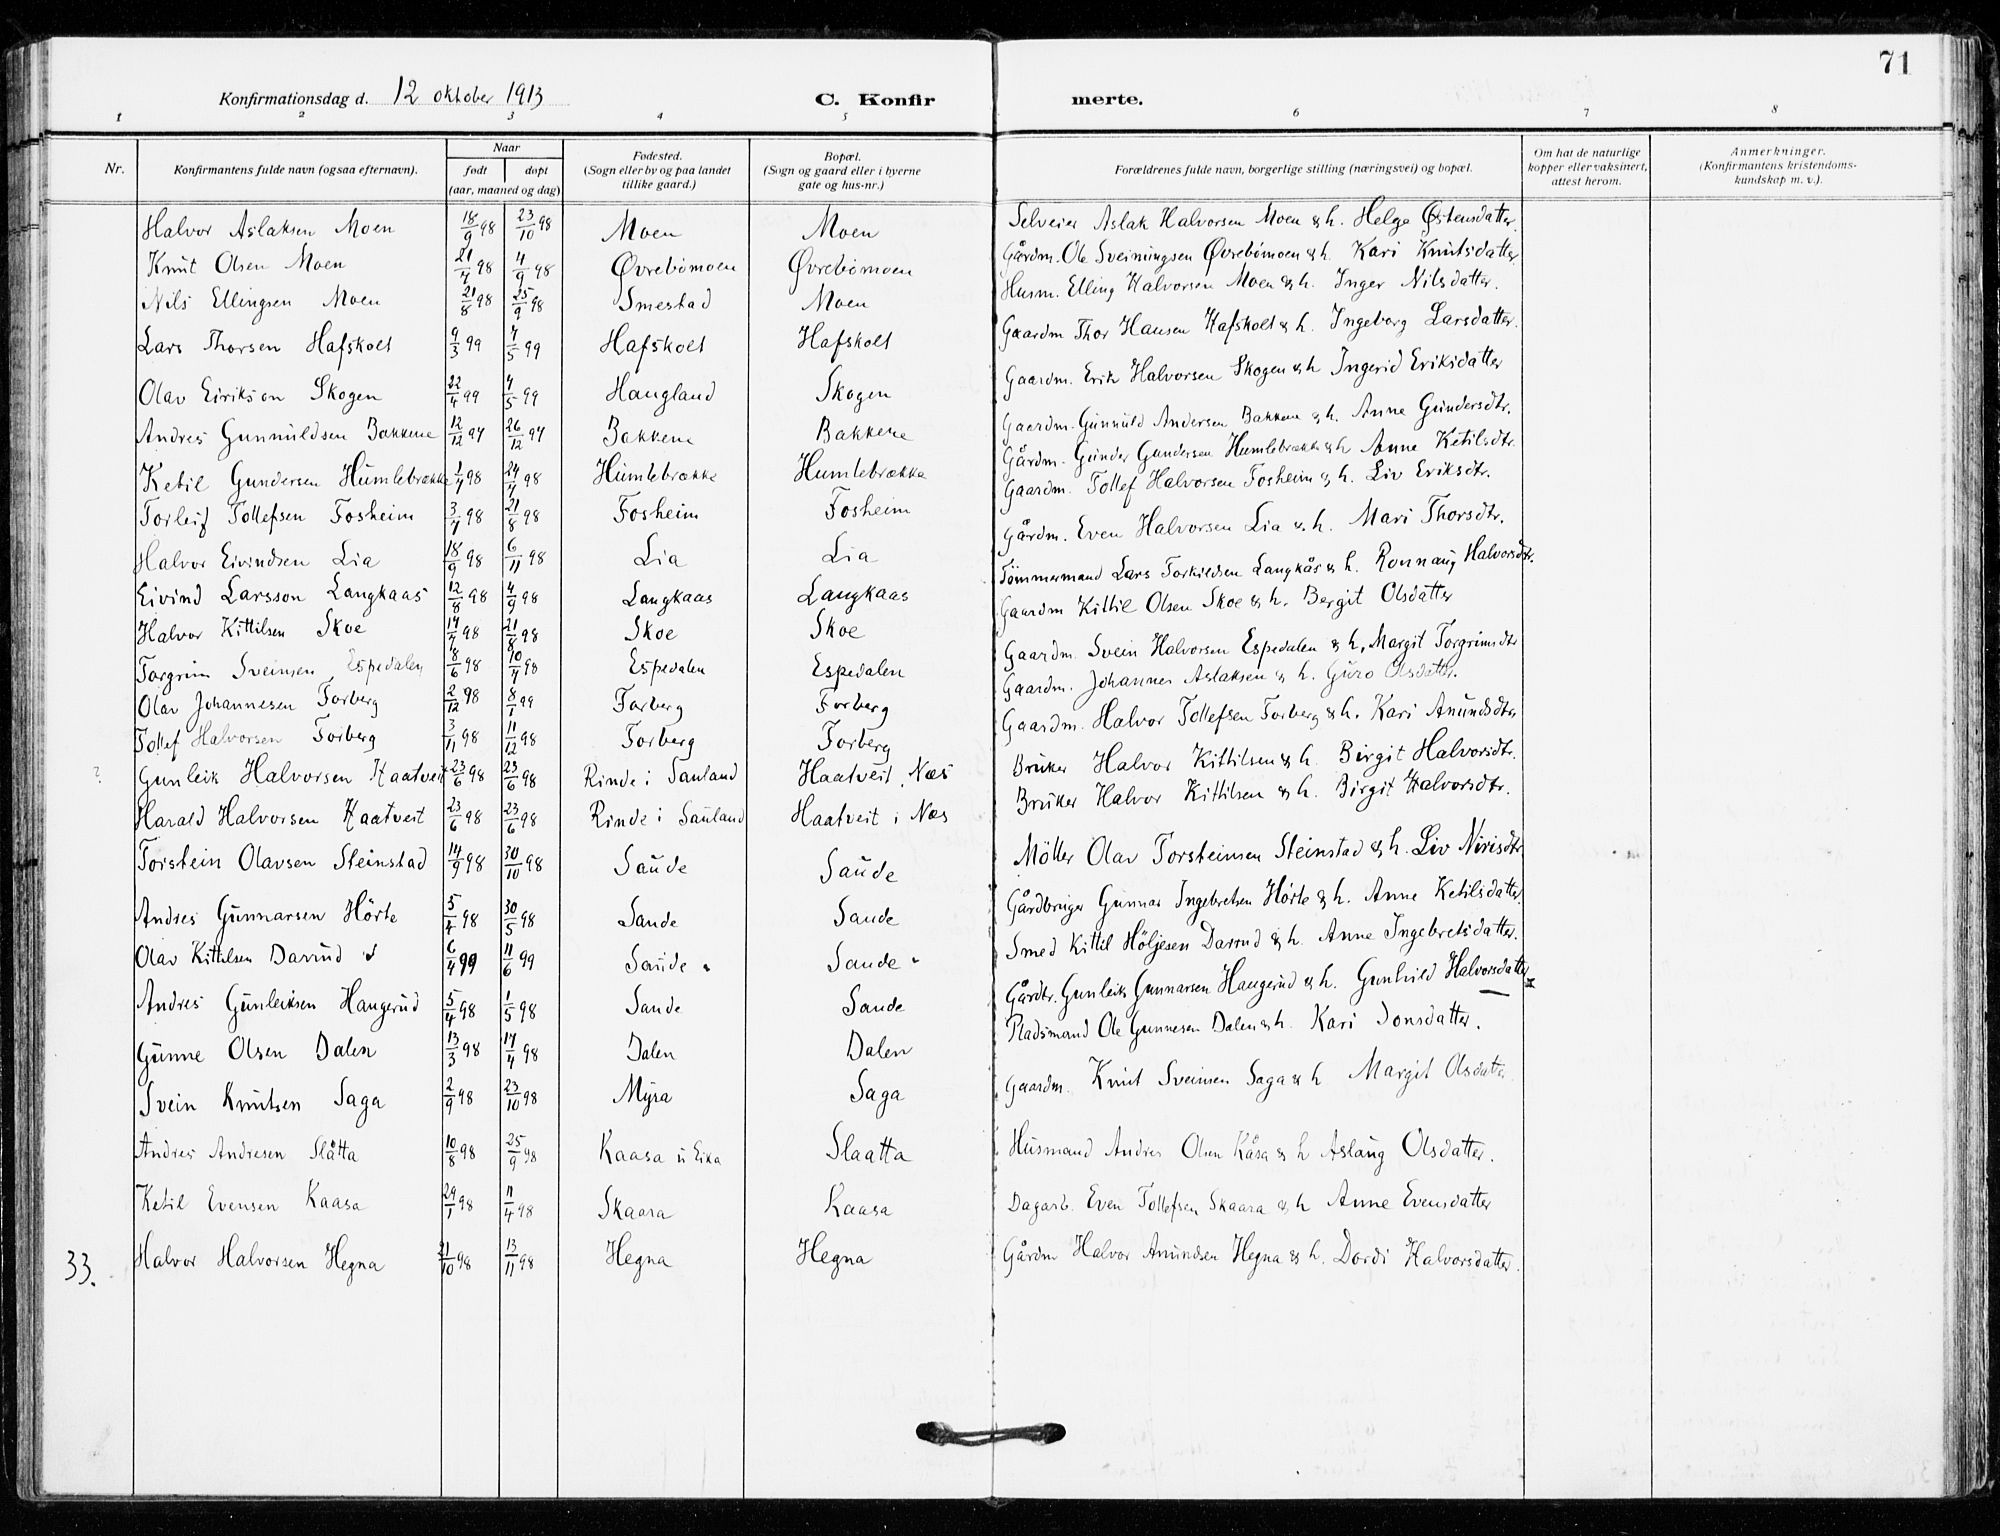 71
Konfirmationsdag d. 12 oktober 1913 C. Konfirmerte.
1 2 3 4 5 6 7 8
Nr. Konfirmantens fulde navn (ogsaa efternavn). Naar født døpt (aar, maaned og dag) Fødested. (Sogn eller by og paa landet tillike gaard.) Bopæl. (Sogn og gaard eller i byerne gate og hus-nr.) Forældrenes fulde navn, borgerlige stilling (næringsvei) og bopæl. Om hat de naturlige kopper eller vaksinert, attest herom. Anmerkninger. (Konfirmantens kristendomskundskap m. v.).
Halvor Aslaksen Moen 18/9 98 23/10 98 Moen Moen Selveier Aslak Halvorsen Moen & h. Helge Østensdatter
Knut Olsen Moen 21/7 98 4/9 98 Øvrebömoen Øvrebömoen Gårdm. Ole Sveinungsen Øvrebömoen & h. Kari Knutsdatter
Nils Ellingsen Moen 21/8 98 25/9 98 Smestad Moen Husm. Elling Halvorsen Moen & h. Inger Nilsdatter.
Lars Thorsen Hafskolt 9/3 99 7/5 99 Hafskolt Hafskolt Gaardm Thor Hansen Hafskolt & h. Ingeborg Larsdatter.
Olav Eirikson Skogen 22/4 99 7/5 99 Haugland Skogen Gaardm. Erik Halvorsen Skogen & h Ingerid Eriksdatter
Andres Gunnuldsen Bakkene 12/12 97 26/12 97 Bakkene Bakkene Gaardm. Gunnuld Andersen Bakken & h. Anne Gundersdtr.
Ketil Gundersen Humlebrække 1/7 98 24/7 98 Humlebrække Humlebrække Gårdm. Gunder Gundersen Humlebrække & h Anne Ketilsdtr.
Torleif Tollefsen Fosheim 3/7 98 21/8 98 Fosheim Fosheim Gaardm. Tollef Halvorsen Fosheim & h. Liv Eriksdtr.
Halvor Eivindsen Lia 18/9 98 6/11 98 Lia Lia Gårdm. Even Halvorsen Lia & h. Mari Thorsdtr.
Eivind Larsson Langkaas 12/8 98 4/9 98 Langkaas Langkaas Tömmermand Lars Torkildsen Langkås & h. Ronnaug Halvorsdtr.
Halvor Kittilsen Skoe 14/7 98 21/8 98 Skoe Skoe Gaardm Kittil Olsen Skoe & h. Bergit Olsdatter
Torgrim Sveinsen Espedalen 8/6 98 10/7 98 Espedalen Espedalen Gaardm. Svein Halvorsen Espedalen & h. Margit Torgrimsdtr
Olav Johannesen Forberg 2/12 98 8/1 99 Forberg Forberg Gaardm. Johannes Aslaksen & h. Guro Olsdatter.
Tollef Halvorsen Forberg 3/11 98 11/12 98 Forberg Forberg Gaardm. Halvor Tollefsen Forberg & h. Kari Anundsdtr
? Gunleik Halvorsen Haatveit 23/6 98 23/6 98 Rinde i Sauland Haatveit, Næs Bruker Halvor Kittilsen & h. Birgit Halvorsdtr.
Harald Halvorsen Haatveit 23/6 98 23/6 98 Rinde i Sauland Haatveit i Næs Bruker Halvor Kittilsen & h. Birgit Halvorsdtr.
Torstein Olavsen Steinstad 14/9 98 30/10 98 Saude Saude Möller Olav Torsteinsen Steinstad & h. Liv Nirisdtr
Andres Gunnarsen Hörte 5/4 98 30/5 98 Saude Saude Gårdbruger Gunnar Ingebretsen Hörte & h. Anne Ketilsdatter
Olav Kittilsen Darrud 6/4 99 11/6 99 Saude Saude Smed Kittil Höljesen Darrud & h. Anne Ingebretsdatter.
Andres Gunleiksen Haugerud 5/4 98 1/5 98 Saude Saude Gårdbr. Gunleik Gunnarsen Haugerud & h. Gunhild Halvorsdatter
Gunne Olsen Dalen 13/3 98 17/4 98 Dalen Dalen Pladsmand Ole Gunnesen Dalen & h. Kari Jonsdatter.
Svein Knutsen Saga 2/9 98 23/10 98 Myra Saga Gaardm. Knut Sveinsen Saga & h Margit Olsdatter
Andres Andresen Slåtta 10/8 98 25/9 98 Kaasa u Eika Slaatta Husmand Andres Olsen Kåsa & h Aslaug Olsdatter.
Ketil Evensen Kaasa 29/1 98 11/4 98 Skaara Kaasa Dagarb. Even Tollefsen Skaara & h Anne Evensdatter
33. Halvor Halvorsen Hegna 21/10 98 13/11 98 Hegna Hegna Gårdm Halvor Anundsen Hegna & h. Dordi Halvorsdatter.